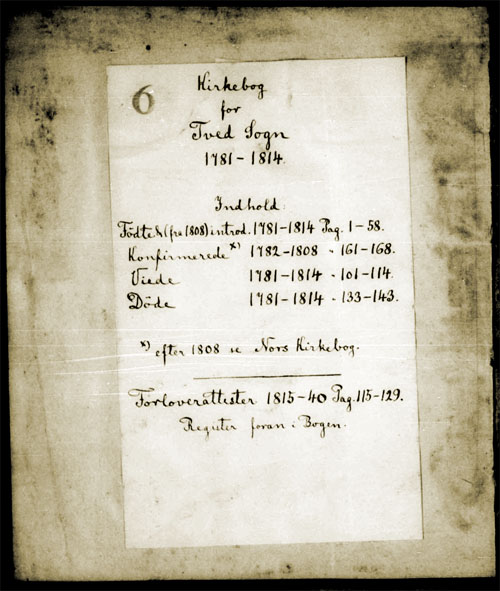 6
Kirkebog
for
Tved Sogn
1781-1814
Indhold:
Födte & (fra 1808) introd. 1781-1814 Pag. 1-58.
Konfirmerede x) 1782-1808 - 161-168.
Viede 1781-1814 - 101-114.
Döde 1781-1814 - 133-143.
x) efter 1808 se Nors Kirkebog.
Forloverattester 1815-40 Pag. 115-129.
Register foran i Bogen.